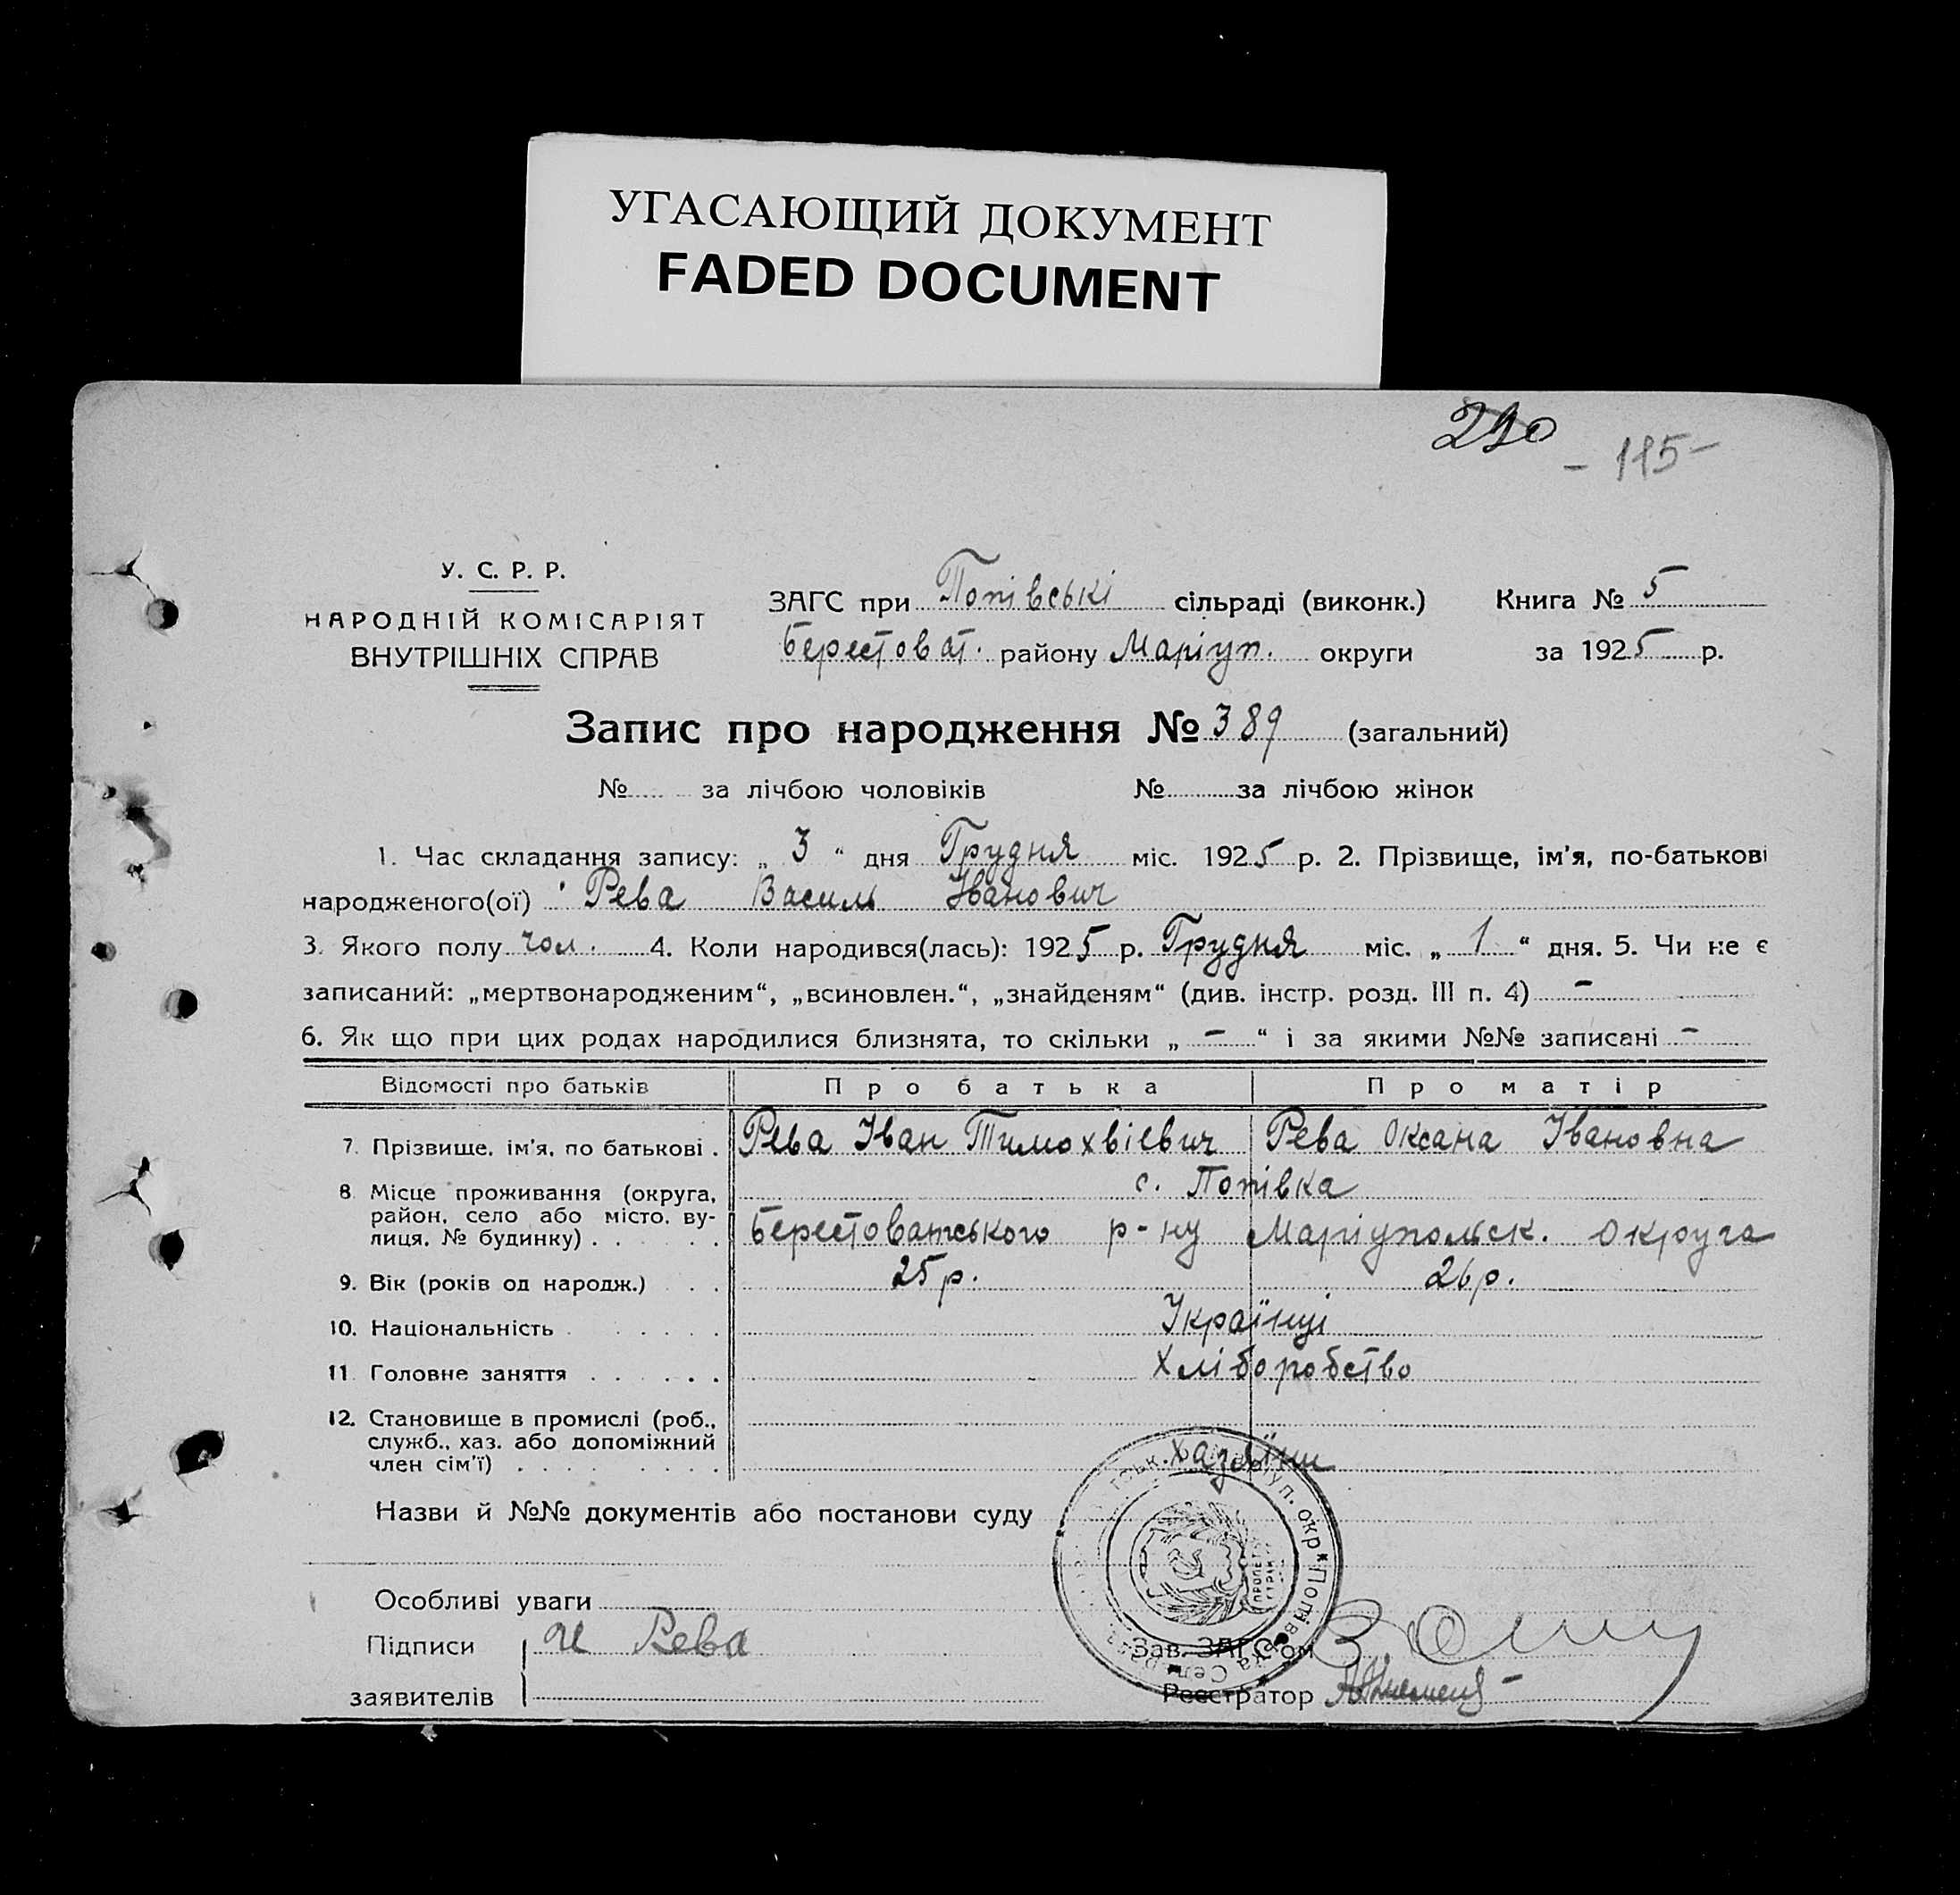 УГАСАЮЩИЙ ДОКУМЕНТ
FADED DOCUMENT
290
- 115 -
У. С. Р. Р.
НАРОДНІЙ КОМІСАРІЯТ
ВНУТРІШНІХ СПРАВ
ЗАГС при Попівські сільраді (виконк.) Книга № 5
Берестоват. району Маріуп. округи за 1925 р.
Запис про народження № 389 (загальний)
№ за лічбою чоловіків № за лічбою жінок
1. Час складання запису: „ 3 “ дня Грудня міс. 1925 р. 2. Прізвище, ім’я, по-батькові
народженого(ої) Рева Василь Іванович
3. Якого полу чол. 4. Коли народився(лась): 1925 р. Грудня міс. „ 1 “ дня. 5. Чи не є
записаний: „мертвонародженим“, „всиновлен.“, „знайденям“ (див. інстр. розд. III п. 4) –
6. Як що при цих родах народилися близнята, то скільки „ – “ і за якими №№ записані –
Відомості про батьків Про батька Про матір
7. Прізвище, ім’я, по батькові . Рева Іван Тимохвієвич Рева Оксана Івановна
8. Місце проживання (округа, с. Попівка
район, село або місто, ву-
лиця, № будинку) . Берестоватського р-ну Маріупольск. округа
9. Вік (років од народж.) 25 р. 26 р.
10. Національність Українці
11. Головне заняття Хліборобство
12. Становище в промислі (роб.,
служб., хаз. або допоміжний
член сім’ї) Хазяїни
Назви й №№ документів або постанови суду
Особливі уваги
Підписи И Рева Зав. ЗАГС’ом
заявителів Реєстратор
уп. окр * Попівська Сел